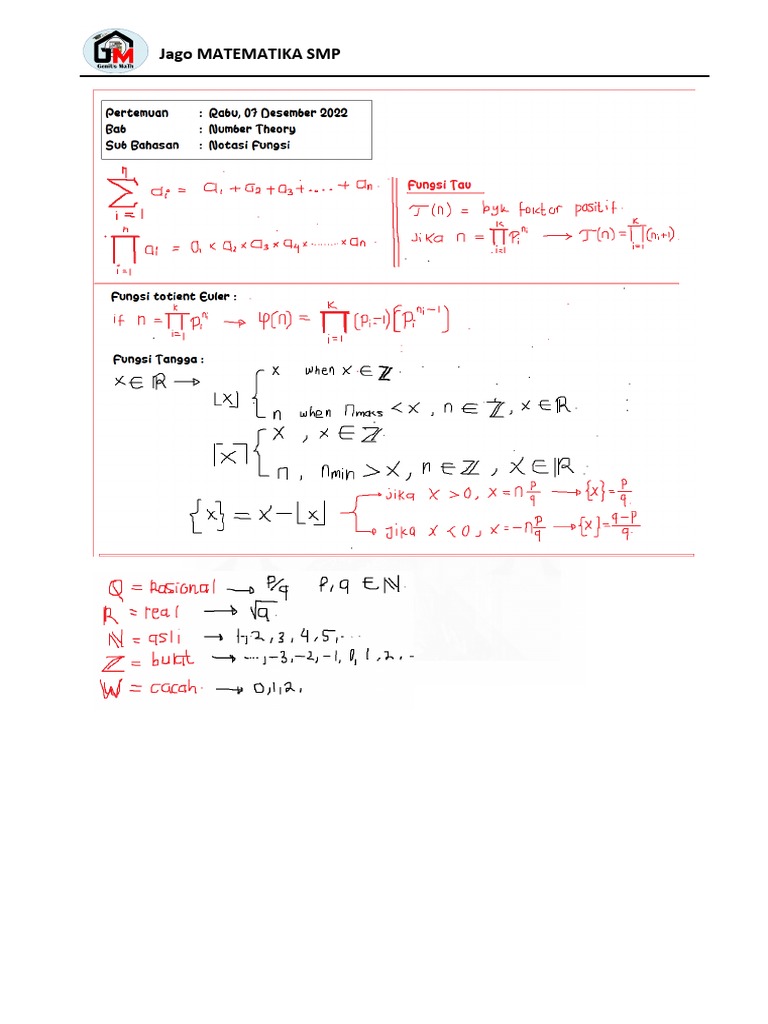 GM
Genius Math
Jago MATEMATIKA SMP
Pertemuan : Rabu, 07 Desember 2022
Bab : Number Theory
Sub Bahasan : Notasi Fungsi
∑_{i=1}^{n} a_i = a_1 + a_2 + a_3 + .... + a_n.
∏_{i=1}^{n} a_i = a_1 × a_2 × a_3 × a_4 × ......... × a_n
Fungsi Tau
τ(n) = byk faktor positif.
Jika n = ∏_{i=1}^{k} p_i^{n_i} → τ(n) = ∏_{i=1}^{k} (n_i+1)
Fungsi totient Euler :
if n = ∏_{i=1}^{k} p_i^{n_i} → φ(n) = ∏_{i=1}^{k} (p_i−1)[p_i^{n_i−1}]
Fungsi Tangga :
x ∈ ℝ → ⌊x⌋ { x when x ∈ ℤ
n when n_maks < x, n ∈ ℤ, x ∈ ℝ
⌈x⌉ { x, x ∈ ℤ
n, n_min > x, n ∈ ℤ, x ∈ ℝ
{x} = x − ⌊x⌋
jika x > 0, x = n p/q → {x} = p/q
Jika x < 0, x = −n p/q → {x} = q−p/q
Q = Rasional → p/q p, q ∈ ℕ
R = real → √a.
ℕ = asli → 1, 2, 3, 4, 5, ...
ℤ = bulat → ..., −3, −2, −1, 0, 1, 2, ..
W = cacah. → 0, 1, 2,